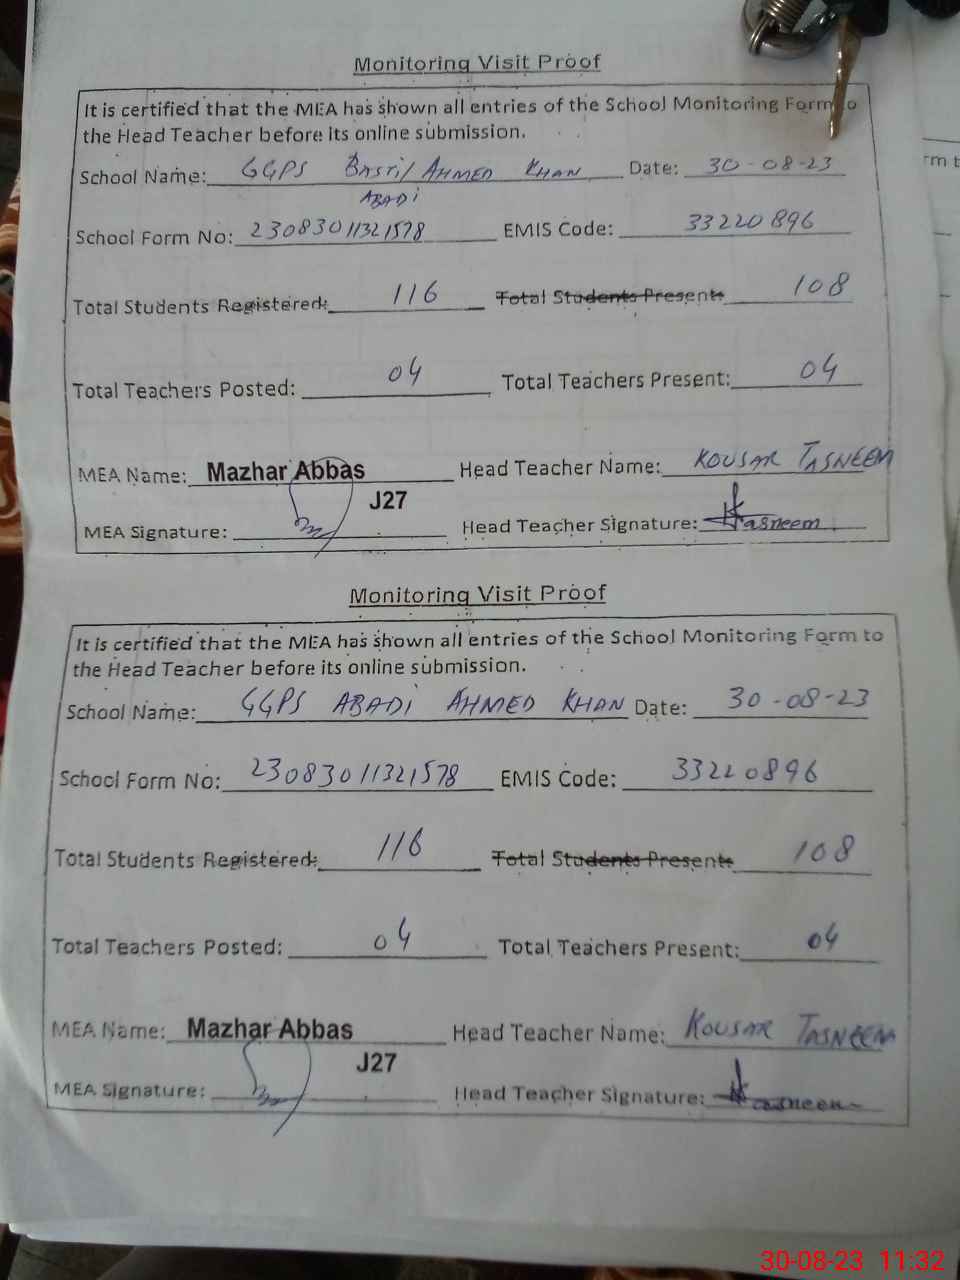 Monitoring Visit Proof
It is certified that the MEA has shown all entries of the School Monitoring Form to
the Head Teacher before its online submission.
School Name: GGPS Basti/ AHMED KHAN Date: 30-08-23
ABADi
School Form No: 23083011321578 EMIS Code: 33220896
Total Students Registered: 116 Total Students Present: 108
Total Teachers Posted: 04 Total Teachers Present: 04
MEA Name: Mazhar Abbas Head Teacher Name: KOUSAR TASNEEM
J27
MEA Signature: Head Teacher Signature: Ktasneem
Monitoring Visit Proof
It is certified that the MEA has shown all entries of the School Monitoring Form to
the Head Teacher before its online submission.
School Name: GGPS ABADi AHMED KHAN Date: 30-08-23
School Form No: 23083011321578 EMIS Code: 33220896
Total Students Registered: 116 Total Students Present: 108
Total Teachers Posted: 04 Total Teachers Present: 04
MEA Name: Mazhar Abbas Head Teacher Name: KOUSAR TASNEEM
J27
MEA Signature: Head Teacher Signature: Ktasneem
rm t
30-08-23 11:32